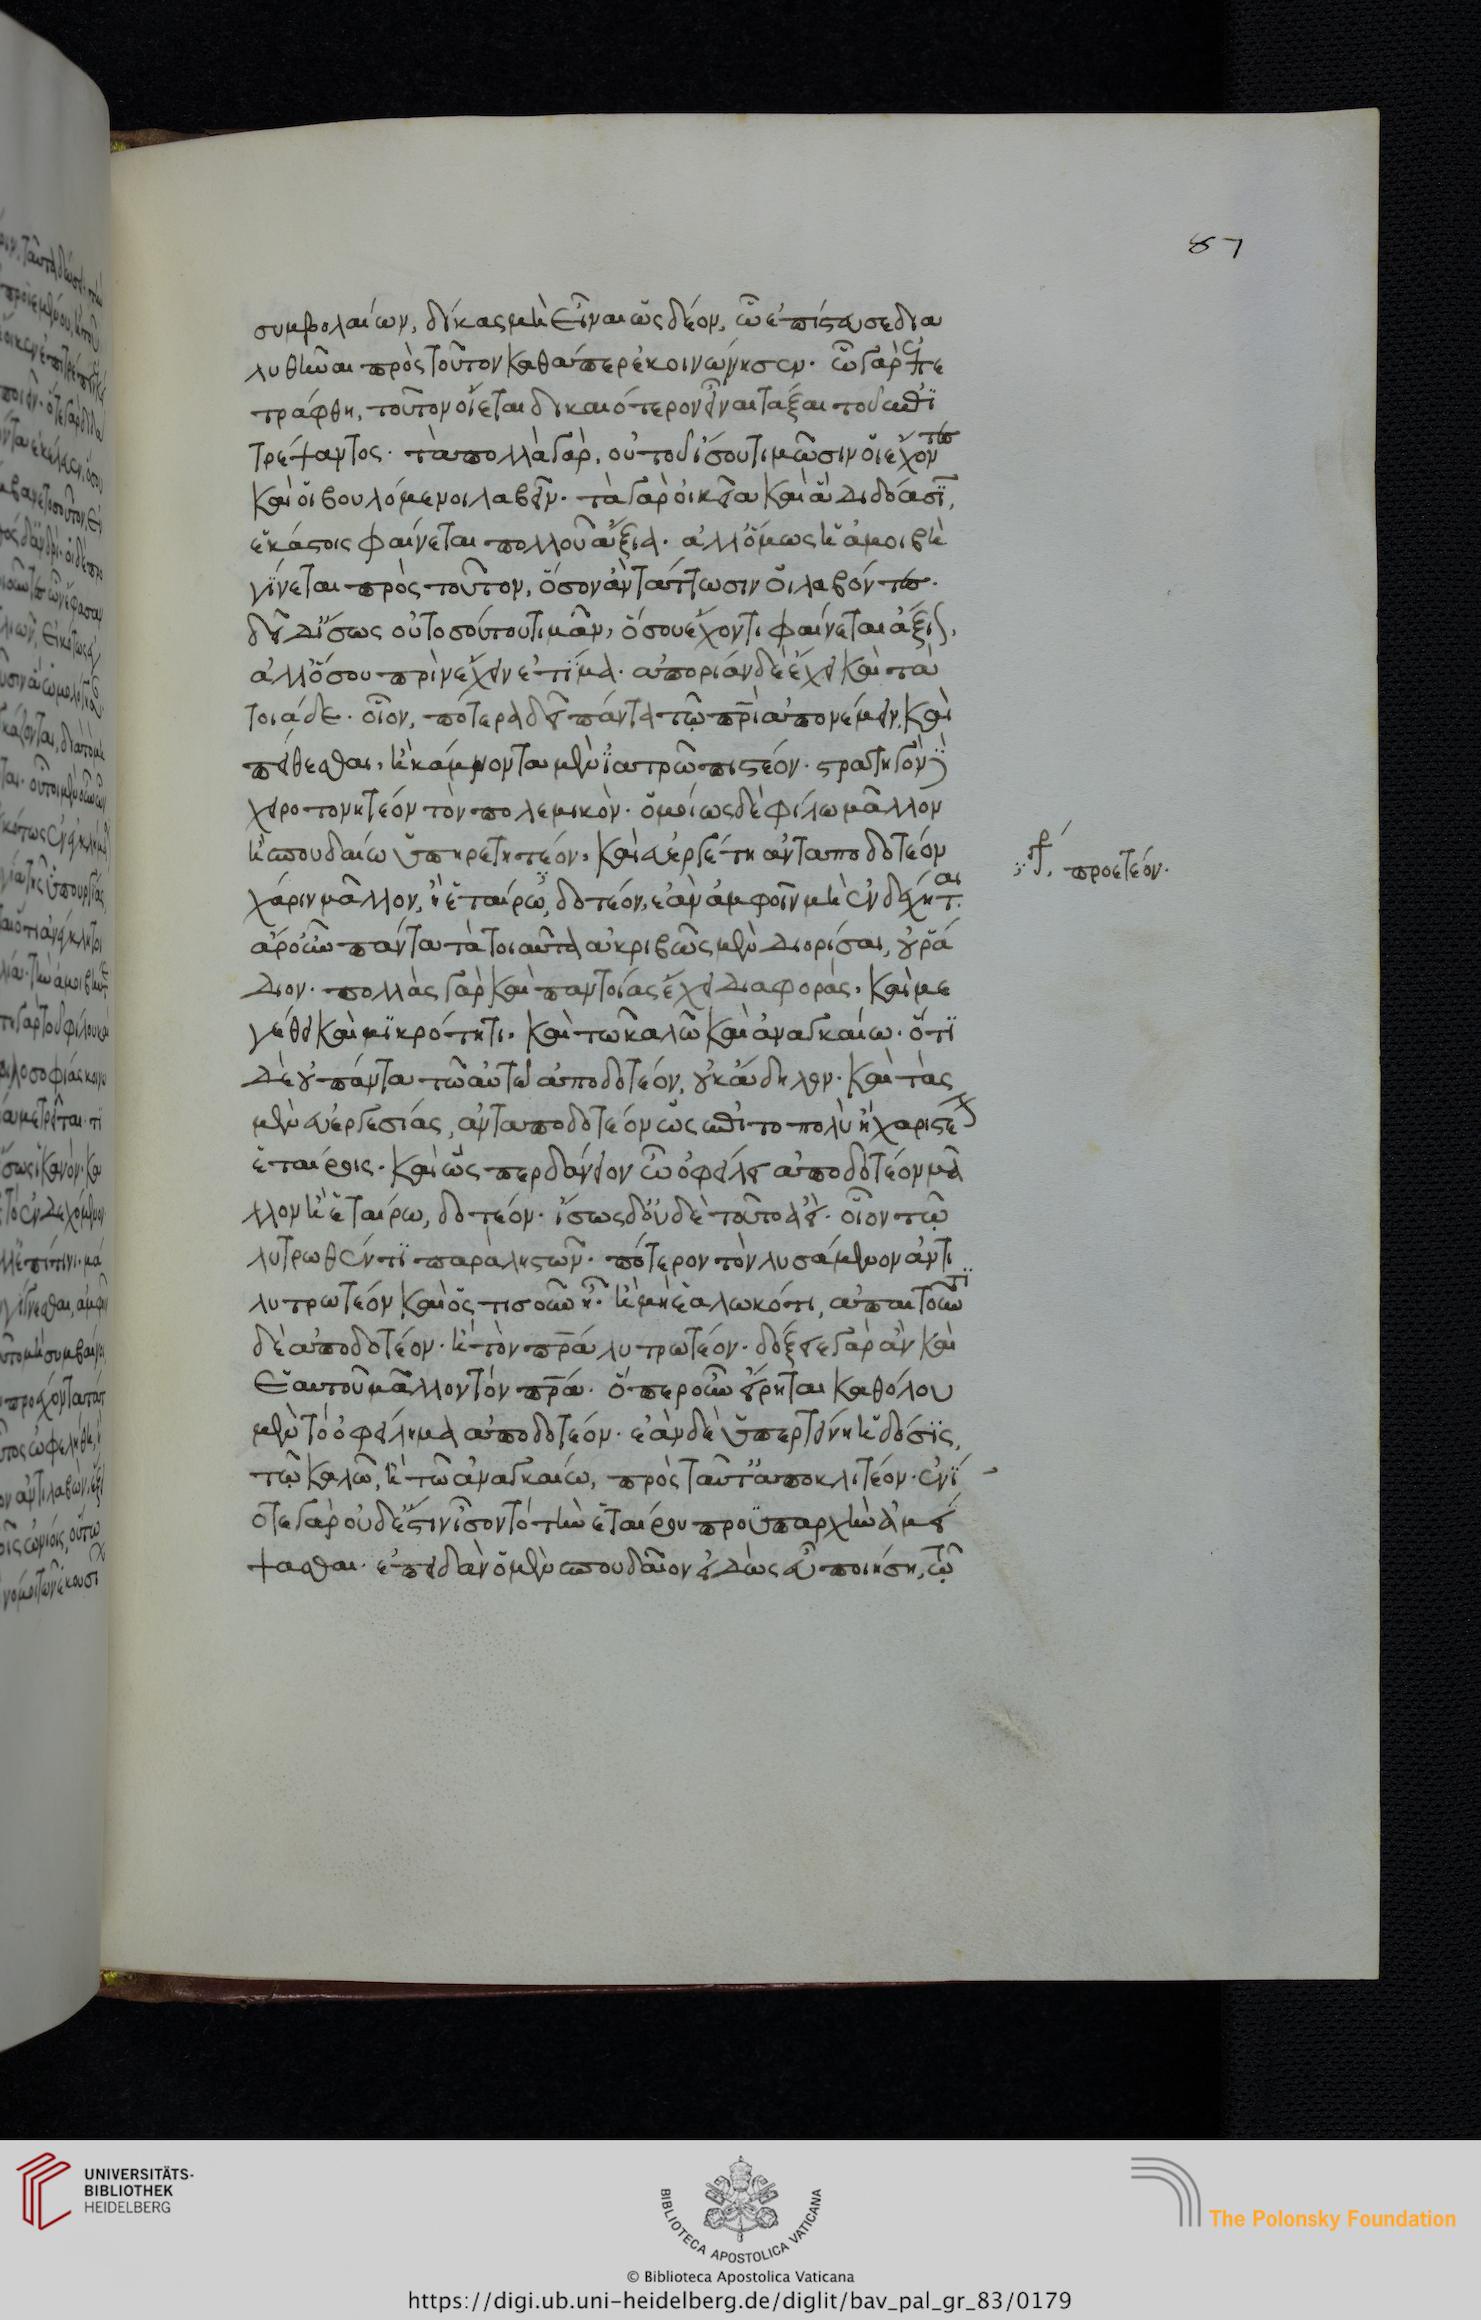 87
συμβολαίων, δίκας μὴ εἶναι ὡς δέον, ὧ ἐπίστευσε δια
λυθῆναι πρὸς τοῦτον καθάπερ ἐκοινώνησεν. ὧ γὰρ ἐπε
τράφθη, τοῦτον οἴεται δικαιότερον εἶναι τάξαι τοῦ ἐπι
τρέψαντος. τὰ πολλὰ γὰρ, οὐ τοῦ ἴσου τιμῶσιν οἱ ἔχοντες
καὶ οἱ βουλόμενοι λαβεῖν. τὰ γὰρ οἰκεῖα καὶ ἃ διδόασϊ,
ἑκάστοις φαίνεται πολλοῦ ἄξια. ἀλλ' ὅμως ἡ ἀμοιβὴ
γίνεται πρὸς τοῦτον, ὅσον ἂν τάττωσιν οἱ λαβόντες.
δεῖ δ' ἴσως οὐ τοσούτου τιμᾶν, ὅσου ἔχοντι φαίνεται ἄξιον,
ἀλλ' ὅσου πρὶν ἔχειν ἐτίμα. ἀπορίαν δὲ ἔχει καὶ τὰ
τοιάδε. οἷον, πότερα δεῖ πάντα τῷ πρὶ ἀπονέμειν, καὶ
πείθεσθαι, ἢ κάμνοντα μὲν ἰατρῶ πιστέον. στρατηγὸν δὲ
χειροτονητέον τὸν πολεμικὸν. ὁμοίως δὲ φίλω μᾶλλον
ἢ σπουδαίω ὑπηρετητέον, καὶ εὐεργέτη ἀνταποδοτέον
χάριν μᾶλλον, ἢ ἑταίρω, δοτέον, ἐὰν ἀμφοῖν μὴ ἐνδέχηται.
ἆρ' οὖν πάντα τὰ τοιαῦτα ἀκριβῶς μὲν διορίσαι, οὐ ῥᾴ
διον. πολλὰς γὰρ καὶ παντοίας ἔχει διαφοράς, καὶ με
γέθει καὶ μϊκρότητι, καὶ τῶ καλῶ καὶ ἀναγκαίω. ὅτϊ
δὲ οὐ πάντα τῶ αὐτῶ ἀποδοτέον, οὐκ ἄδηλον. καὶ τὰς
μὲν εὐεργεσίας, ἀνταποδοτέον ὡς ἐπὶ το πολὺ ἢ χαριστέον
ἑταίροις. καὶ ὥσπερ δάνειον ὧ ὀφείλει ἀποδοτέον μᾶ
λλον ἢ ἑταίρω, δοτέον. ἴσως δ' οὐδὲ τοῦτο ἀεὶ. οἷον τῷ
λυτρωθέντϊ παρὰ ληστῶν. πότερον τὸν λυσάμενον ἀντι
λυτρωτέον καὶ ὅστισοῦν ἦ. ἢ μὴ ἑαλωκότι, ἀπαιτοῦντϊ
δὲ ἀποδοτέον. ἢ τὸν πρα λυτρωτέον. δόξειε γὰρ ἂν καὶ
ἑαυτοῦ μᾶλλον τὸν πρα. ὅπερ οὖν εἴρηται καθόλου
μὲν τὸ ὀφείλημα ἀποδοτέον. ἐὰν δὲ ὑπερτείνη ἡ δόσϊς,
τῷ καλῶ, ἢ τῶ ἀναγκαίω, πρὸς ταῦτ' ἀποκλιτέον. ἐνϊ
οτε γὰρ οὐδέστιν ἶσον τό τὴν ἑταίρου προϋπαρχὴν ἀμεί
ψασθαι. ἐπειδὰν ὁ μὲν σπουδαῖον εἰδὼς εὖ ποιήση, τῷ
γρ, προετέον.
UNIVERSITÄTS-
BIBLIOTHEK
HEIDELBERG
BIBLIOTECA APOSTOLICA VATICANA
© Biblioteca Apostolica Vaticana
The Polonsky Foundation
https://digi.ub.uni-heidelberg.de/diglit/bav_pal_gr_83/0179